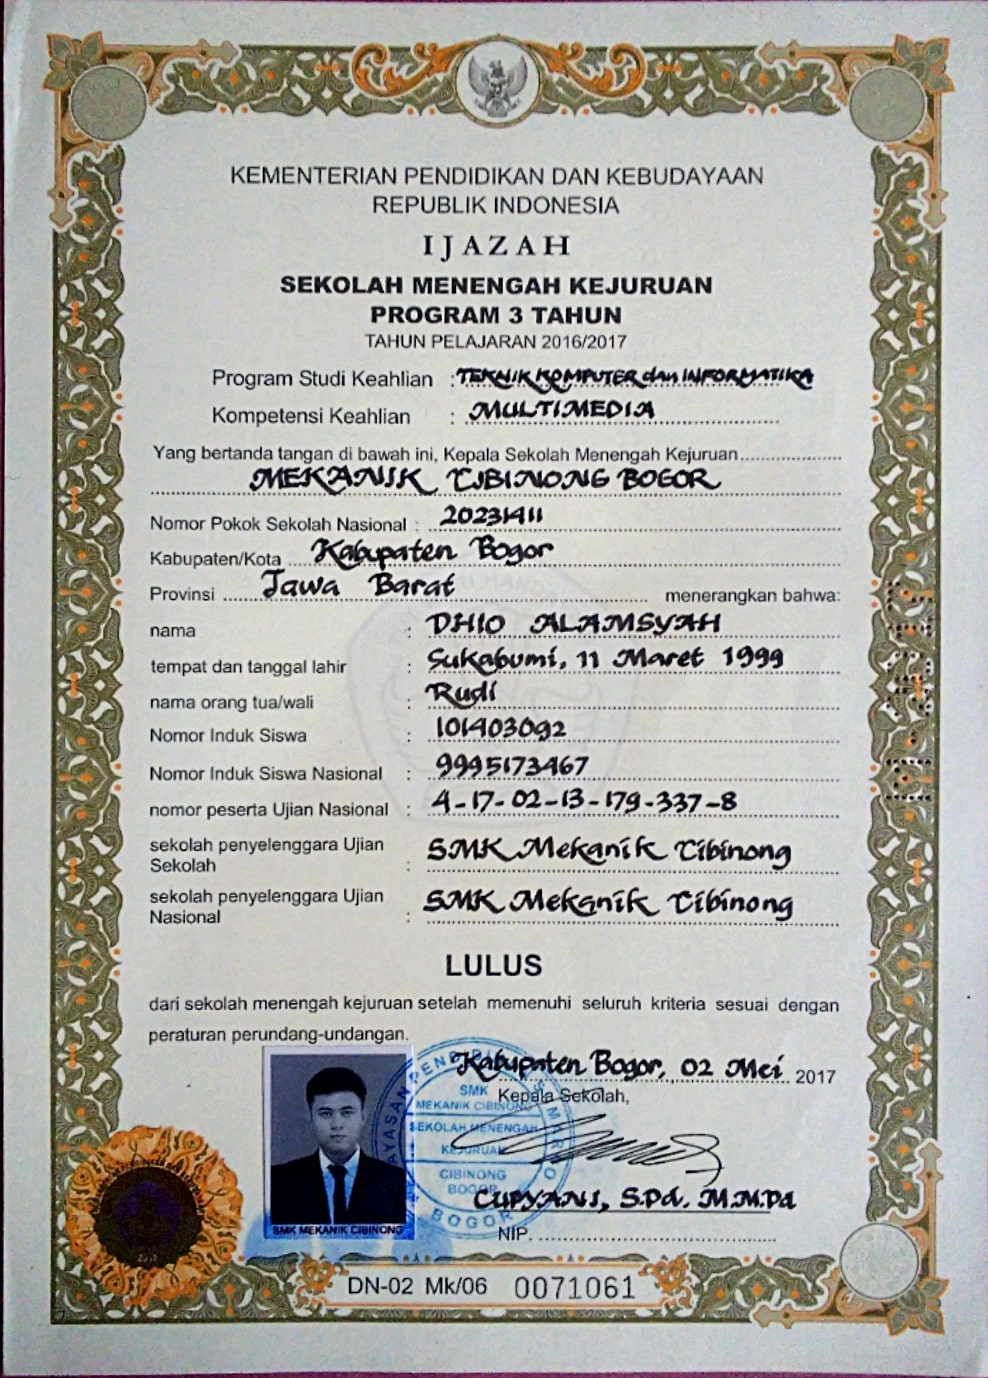 KEMENTERIAN PENDIDIKAN DAN KEBUDAYAAN
REPUBLIK INDONESIA
IJAZAH
SEKOLAH MENENGAH KEJURUAN
PROGRAM 3 TAHUN
TAHUN PELAJARAN 2016/2017
Program Studi Keahlian : TEKNIK KOMPUTER dan INFORMATIKA
Kompetensi Keahlian : MULTIMEDIA
Yang bertanda tangan di bawah ini, Kepala Sekolah Menengah Kejuruan
MEKANIK CIBINONG BOGOR
Nomor Pokok Sekolah Nasional : 20231411
Kabupaten/Kota Kabupaten Bogor
Provinsi Jawa Barat menerangkan bahwa:
nama : DHIO ALAMSYAH
tempat dan tanggal lahir : Sukabumi, 11 Maret 1999
nama orang tua/wali : Rudi
Nomor Induk Siswa : 101403092
Nomor Induk Siswa Nasional : 9995173467
nomor peserta Ujian Nasional : 4-17-02-13-179-337-8
sekolah penyelenggara Ujian
Sekolah : SMK Mekanik Cibinong
sekolah penyelenggara Ujian
Nasional : SMK Mekanik Cibinong
LULUS
dari sekolah menengah kejuruan setelah memenuhi seluruh kriteria sesuai dengan
peraturan perundang-undangan.
Kabupaten Bogor, 02 Mei 2017
Kepala Sekolah,
SMK
MEKANIK CIBINONG
SEKOLAH MENENGAH
KEJURUAN
CIBINONG
BOGOR
BOGOR
CUPYANI, S.Pd. M.M.Pd
NIP.
SMK MEKANIK CIBINONG
DN-02 Mk/06 0071061